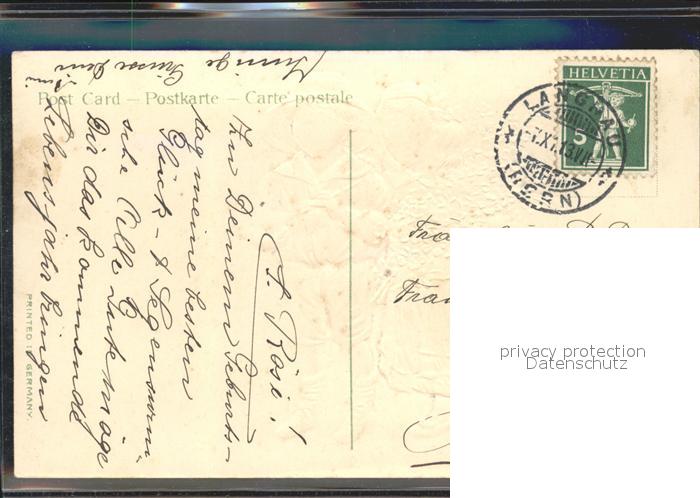 Post Card – Postkarte – Carte postale
HELVETIA
5
LANGNAU
(BERN)
L. Rösi!
Zu Deinem Geburts-
tag meine besten
Glück- & Segenswün-
sche. Alles Gute möge
Dir das kommende
Lebensjahr bringen
Innige Grüsse Deine
PRINTED IN GERMANY.
Frä
Frau
privacy protection
Datenschutz